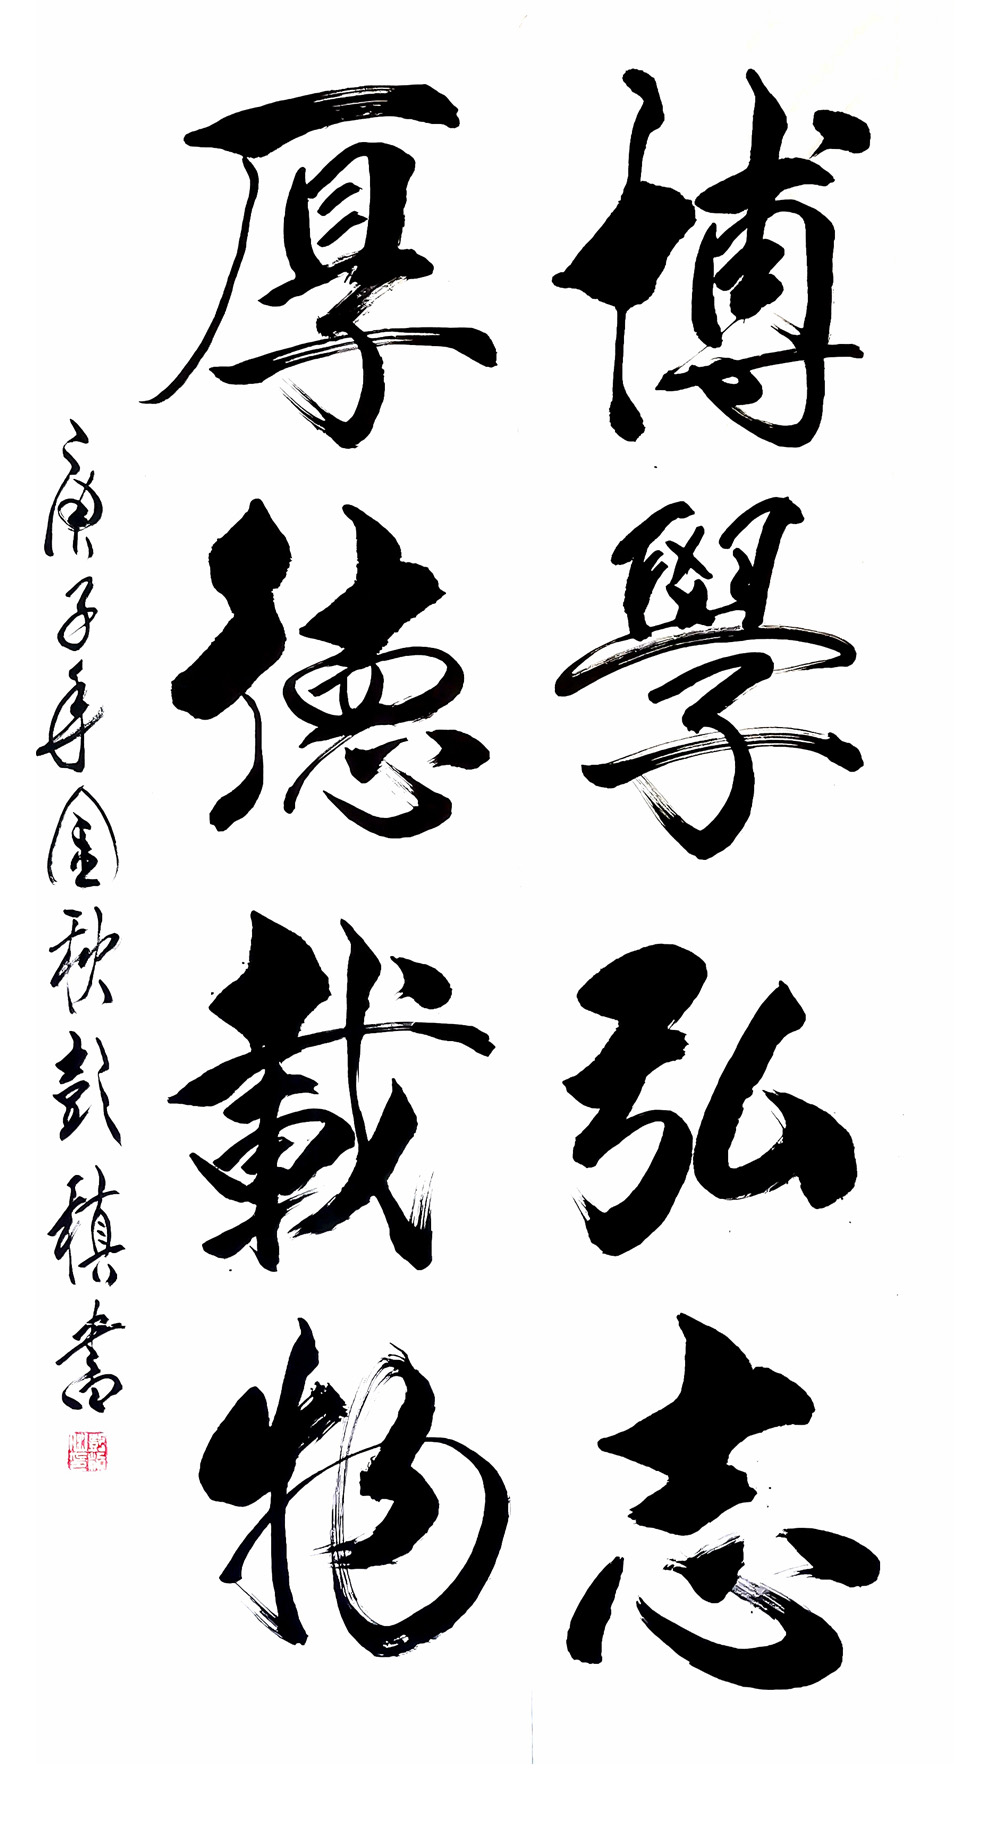 博學弘志
厚德載物
庚子年金秋彭稹書